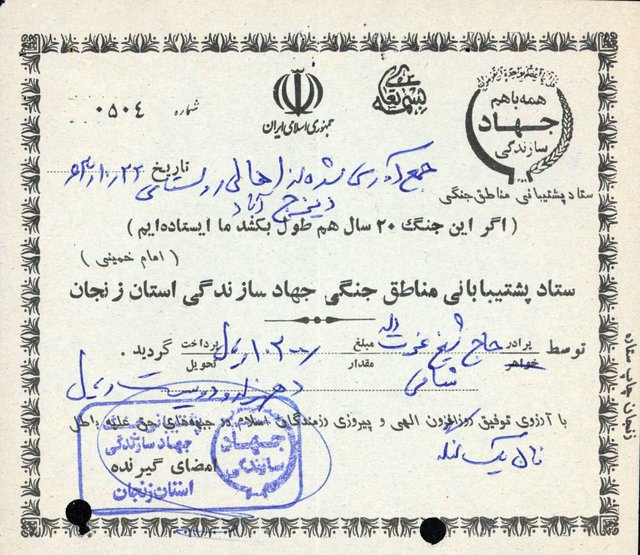 بسمه تعالی
همه با هم
جهاد
سازندگی
جمهوری اسلامی ایران
شماره ۰۵۰۴
ستاد پشتیبانی مناطق جنگی
تاریخ ۶۳/۱۰/۲۳
جمع آوری شده از اهالی روستای
( اگر این جنگ ۲۰ سال هم طول بکشد ما ایستاده‌ایم )
( امام خمینی )
ستاد پشتیبابانی مناطق جنگی جهاد سازندگی استان زنجان
توسط برادر خواهر حاج شیخ مبلغ مقدار ۱۰۲۰۰ ریال پرداخت تحویل گردید .
ده هزار و دویست ریال
با آرزوی توفیق روزافزون الهی و پیروزی رزمندگان اسلام در جبهه‌های حق علیه باطل
امضای گیرنده
پشتیبانی
جهاد سازندگی
استان زنجان
جهاد
سازندگی
زنجان چاپ ستاره